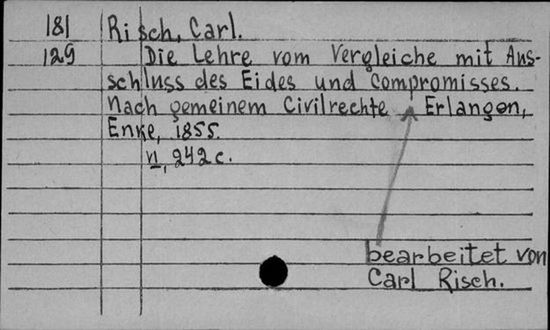 181 Risch, Carl.
129 Die Lehre vom Vergleiche mit Aus-
schluss des Eides und Compromisses.
Nach gemeinem Civilrechte Erlangen,
Enke, 1855.
VI, 242 c.
bearbeitet von
Carl Risch.